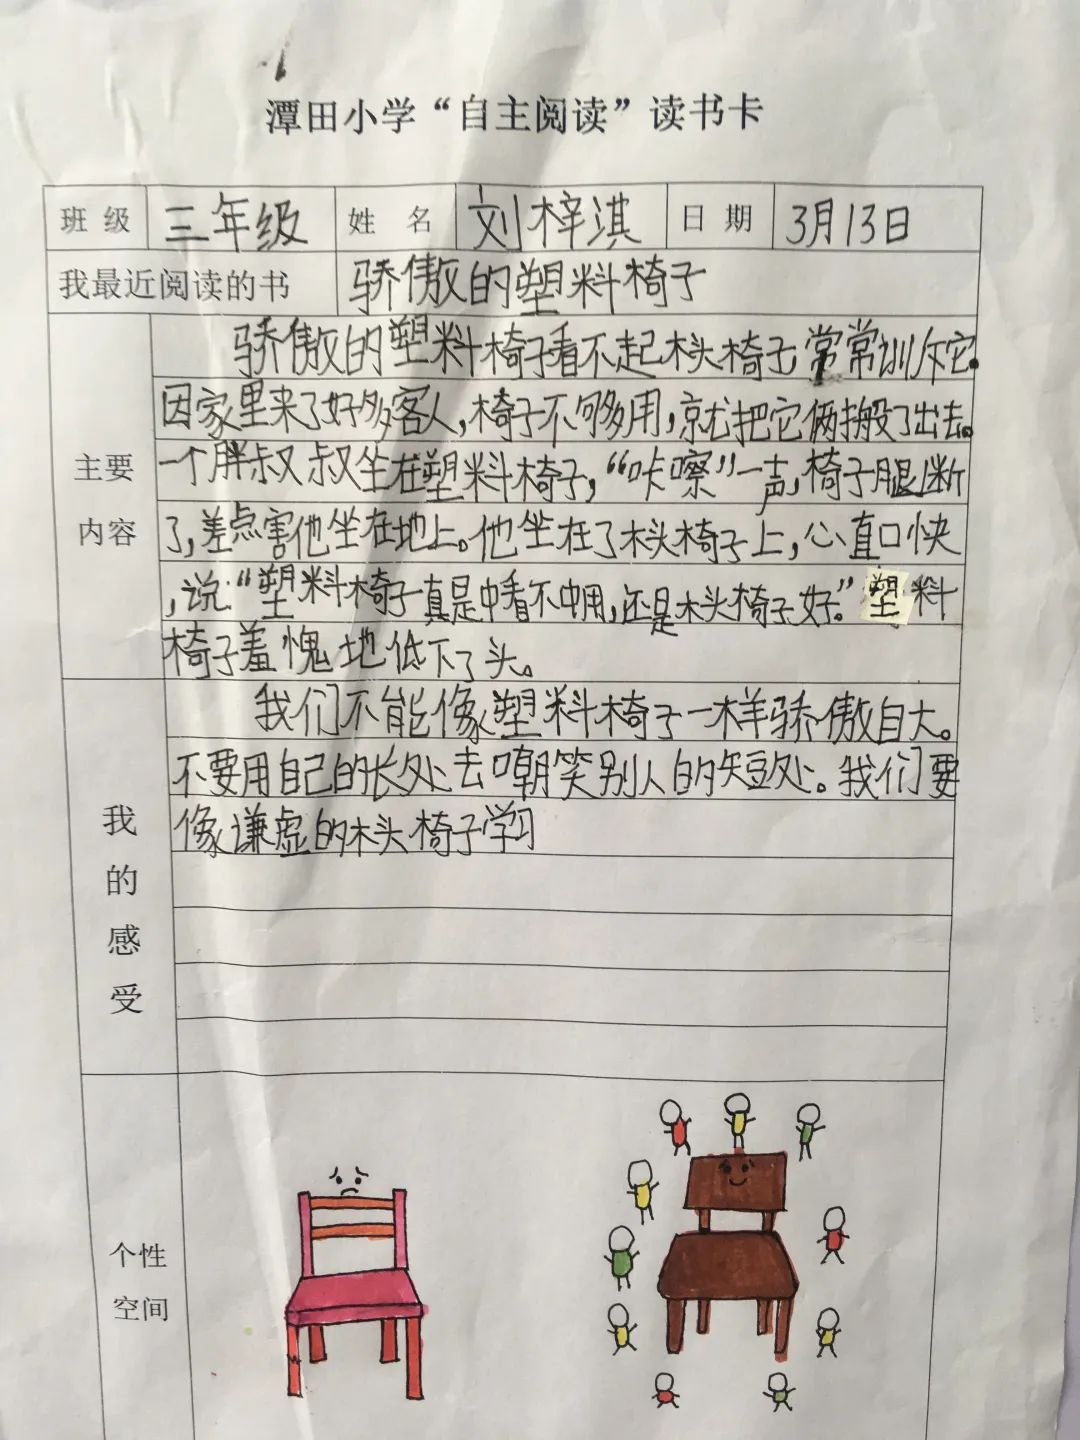 潭田小学“自主阅读”读书卡
班级 三年级 姓名 刘梓淇 日期 3月13日
我最近阅读的书 骄傲的塑料椅子
主要内容
骄傲的塑料椅子看不起木头椅子,常常训斥它。
因家里来了好多客人,椅子不够用,就把它俩搬了出去。
一个胖叔叔坐在塑料椅子,“咔嚓”一声,椅子腿断
了,差点害他坐在地上。他坐在了木头椅子上,心直口快
,说:“塑料椅子真是中看不中用,还是木头椅子好。”塑料
椅子羞愧地低下了头。
我的感受
我们不能像塑料椅子一样骄傲自大。
不要用自己的长处去嘲笑别人的短处。我们要
像谦虚的木头椅子学习
个性空间